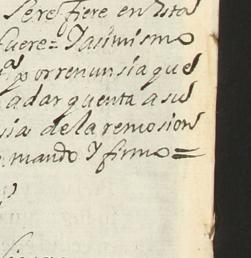 Se refiere en Esta
fuere = Y asimismo
por renunsia que
a dar quenta a su
sia de la remosion
mando Y firmo =